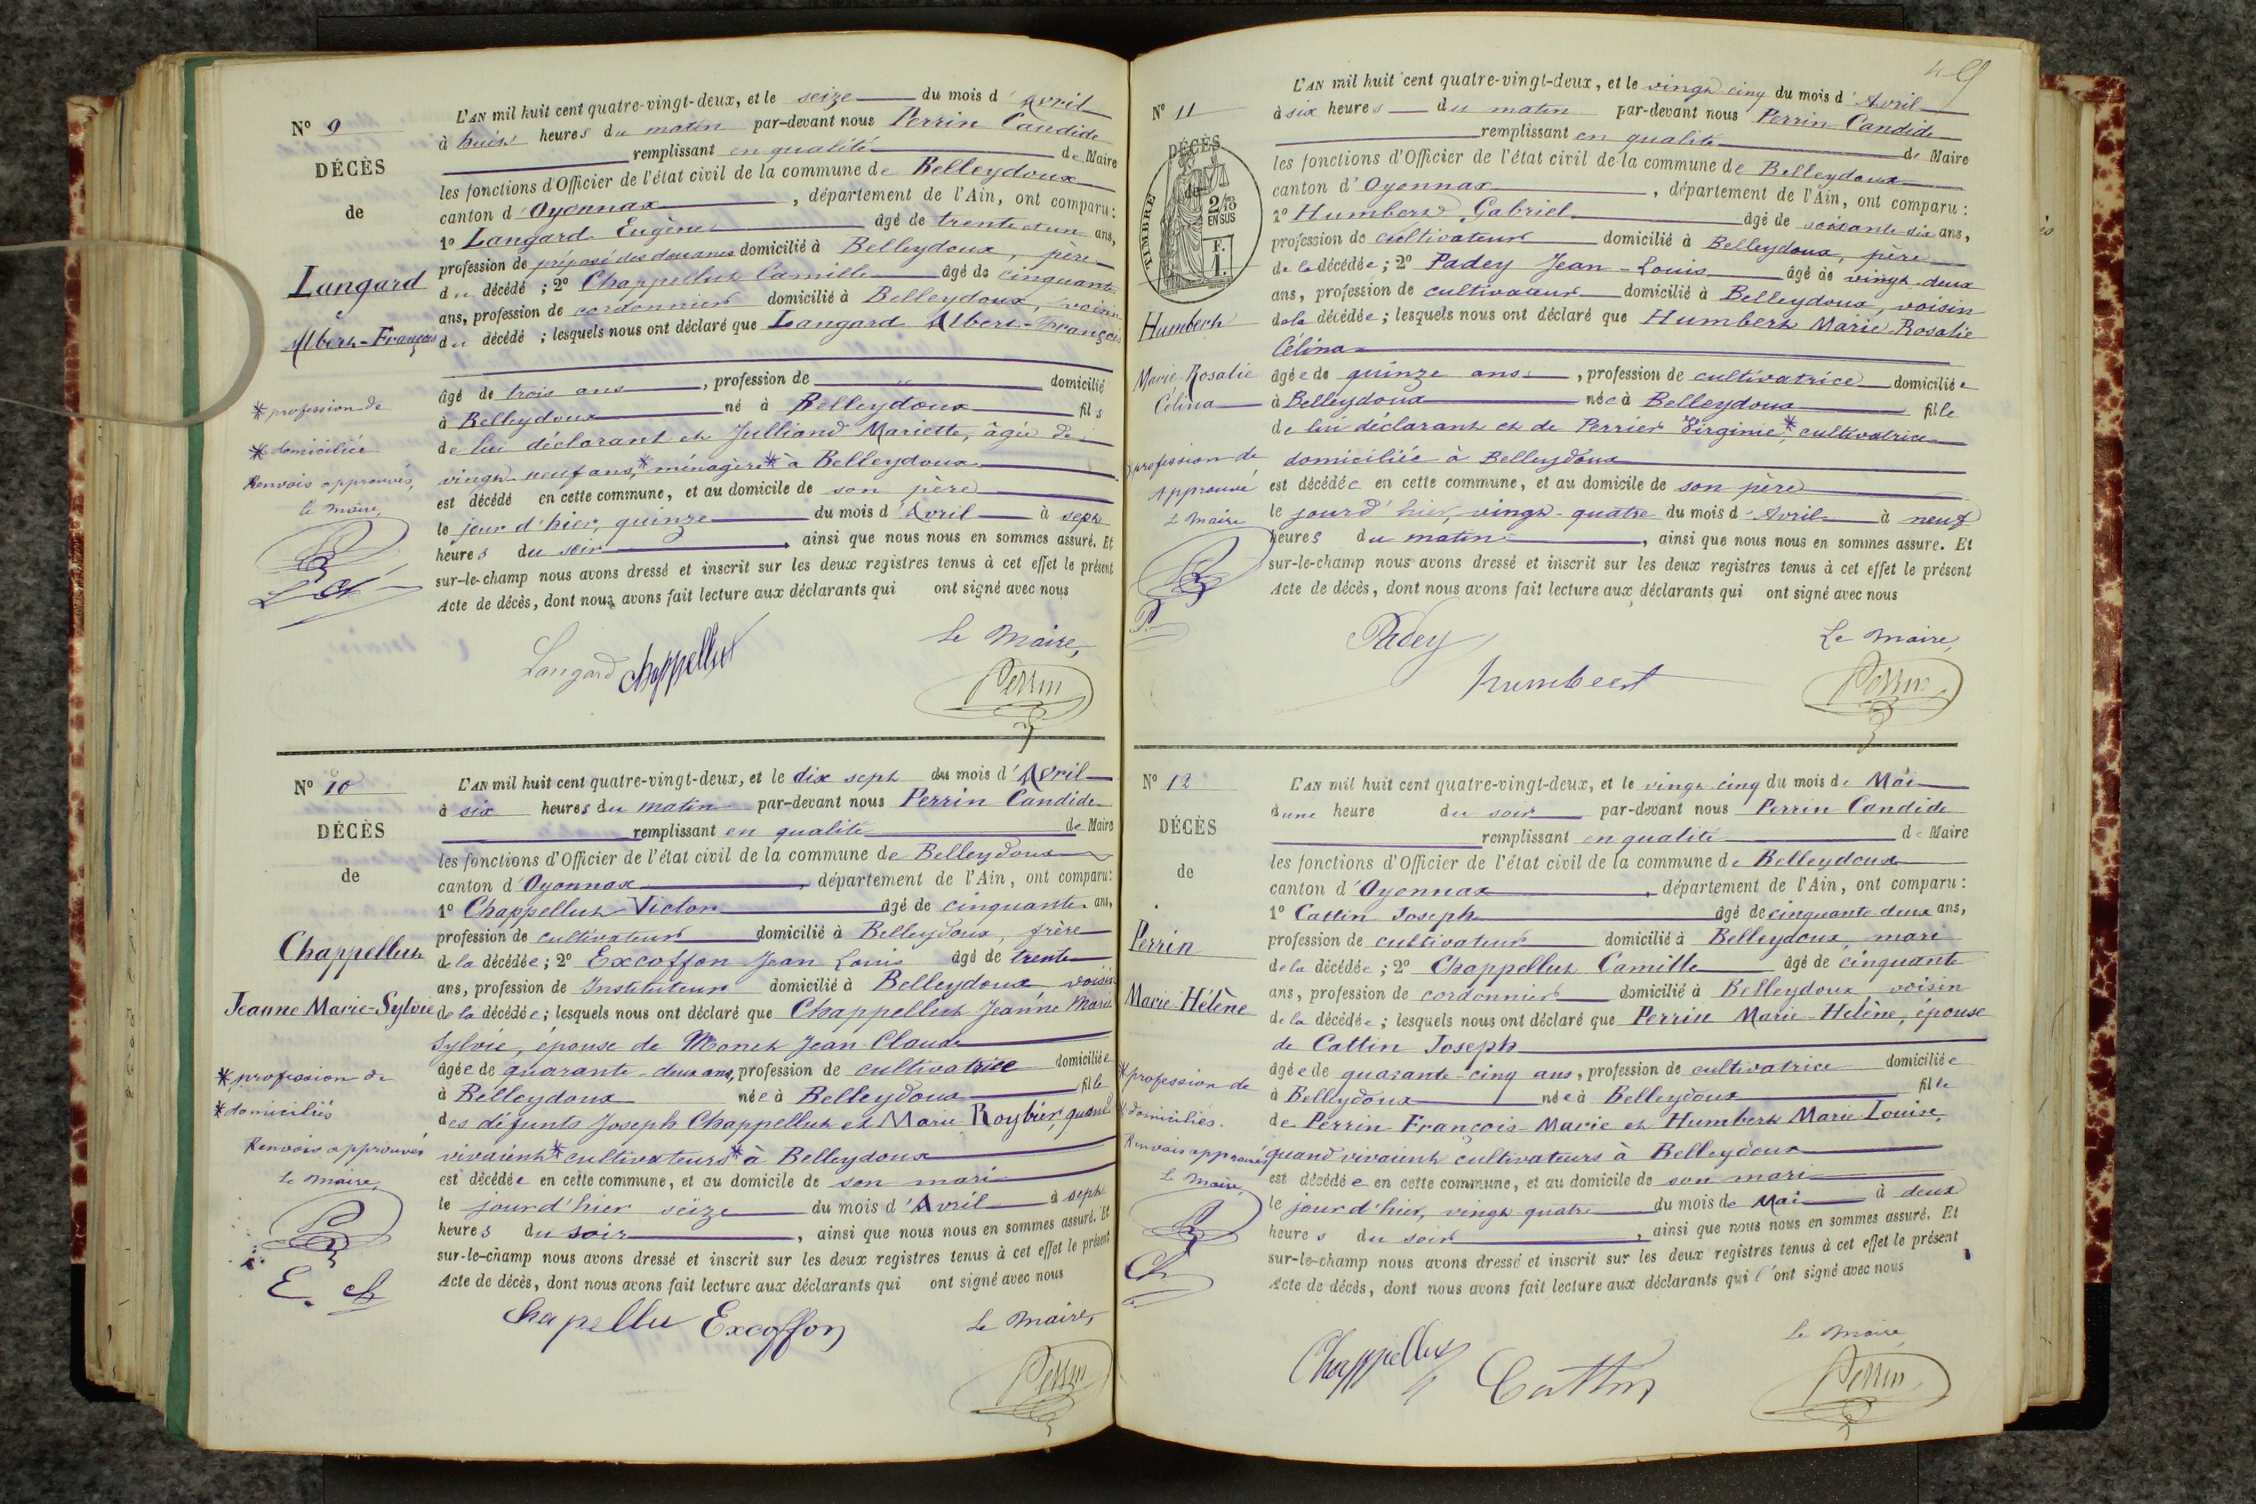 N° 9
DÉCÈS
de
Langard
Albert-François
* profession de
* domiciliée
Renvois approuvés,
le maire,
L'AN mil huit cent quatre-vingt-deux, et le seize du mois d'Avril
à huit heures du matin par-devant nous Perrin Candide
remplissant en qualité de Maire
les fonctions d'Officier de l'état civil de la commune de Belleydoux
canton d'Oyonnax, département de l'Ain, ont comparu:
1° Langard Eugène âgé de trente et un ans,
profession de préposé des douanes domicilié à Belleydoux, père
du décédé; 2° Chappellut Camille âgé de cinquante
ans, profession de cordonnier domicilié à Belleydoux, voisin
du décédé; lesquels nous ont déclaré que Langard Albert-François
âgé de trois ans, profession de " domicilié
à Belleydoux né à Belleydoux fils
de lui déclarant et Julliand Mariette, âgée de
vingt neuf ans, * ménagère * à Belleydoux
est décédé en cette commune, et au domicile de son père
le jour d'hier, quinze du mois d'Avril à sept
heures du soir, ainsi que nous nous en sommes assuré. Et
sur-le-champ nous avons dressé et inscrit sur les deux registres tenus à cet effet le présent
Acte de décès, dont nous avons fait lecture aux déclarants qui ont signé avec nous
Langard Chappellut
Le Maire,
Perrin
N° 10
DÉCÈS
de
Chappellut
Jeanne Marie-Sylvie
* profession de
* domiciliés
Renvois approuvés
le maire,
E. Ch
L'AN mil huit cent quatre-vingt-deux, et le dix sept du mois d'Avril
à six heures du matin par-devant nous Perrin Candide
remplissant en qualité de Maire
les fonctions d'Officier de l'état civil de la commune de Belleydoux
canton d'Oyonnax, département de l'Ain, ont comparu:
1° Chappellut Victor âgé de cinquante ans,
profession de cultivateur domicilié à Belleydoux, frère
de la décédée; 2° Excoffon Jean Louis âgé de trente
ans, profession de Instituteur domicilié à Belleydoux voisin
de la décédée; lesquels nous ont déclaré que Chappellut Jeanne Marie
Sylvie, épouse de Monet Jean Claude
âgée de quarante-deux ans, profession de cultivatrice domiciliée
à Belleydoux née à Belleydoux fille
des défunts Joseph Chappellut et Marie Roybier, quand
vivaient * cultivateurs * à Belleydoux
est décédée en cette commune, et au domicile de son mari
le jour d'hier seize du mois d'Avril à sept
heures du soir, ainsi que nous nous en sommes assuré. Et
sur-le-champ nous avons dressé et inscrit sur les deux registres tenus à cet effet le présent
Acte de décès, dont nous avons fait lecture aux déclarants qui ont signé avec nous
Chapellu Excoffon
Le Maire,
Perrin
N° 11
DÉCÈS
de
TIMBRE
2/10 EN SUS
F.
1.
Humbert
Marie-Rosalie
Célina
* profession de
Approuvé
Le Maire
L'AN mil huit cent quatre-vingt-deux, et le vingt cinq du mois d'Avril
à six heures du matin par-devant nous Perrin Candide
remplissant en qualité de Maire
les fonctions d'Officier de l'état civil de la commune de Belleydoux
canton d'Oyonnax, département de l'Ain, ont comparu:
1° Humbert Gabriel âgé de soixante six ans,
profession de cultivateur domicilié à Belleydoux, père
de la décédée; 2° Padey Jean-Louis âgé de vingt-deux
ans, profession de cultivateur domicilié à Belleydoux, voisin
de la décédée; lesquels nous ont déclaré que Humbert Marie Rosalie
Célina
âgée de quinze ans, profession de cultivatrice domiciliée
à Belleydoux née à Belleydoux fille
de lui déclarant et de Perrier Virginie, * cultivatrice
domiciliée à Belleydoux
est décédée en cette commune, et au domicile de son père
le jour d'hier, vingt-quatre du mois d'Avril à neuf
heures du matin, ainsi que nous nous en sommes assuré. Et
sur-le-champ nous avons dressé et inscrit sur les deux registres tenus à cet effet le présent
Acte de décès, dont nous avons fait lecture aux déclarants qui ont signé avec nous
Padey
humbert
Le Maire,
Perrin
N° 12
DÉCÈS
de
Perrin
Marie-Hélène
* profession de
* domiciliés.
Renvois approuvés
Le Maire,
Ch
L'AN mil huit cent quatre-vingt-deux, et le vingt cinq du mois de Mai
à une heure du soir par-devant nous Perrin Candide
remplissant en qualité de Maire
les fonctions d'Officier de l'état civil de la commune de Belleydoux
canton d'Oyonnax, département de l'Ain, ont comparu:
1° Cattin Joseph âgé de cinquante deux ans,
profession de cultivateur domicilié à Belleydoux mari
de la décédée; 2° Chappellut Camille âgé de cinquante
ans, profession de cordonnier domicilié à Belleydoux voisin
de la décédée; lesquels nous ont déclaré que Perrin Marie-Hélène, épouse
de Cattin Joseph
âgée de quarante-cinq ans, profession de cultivatrice domiciliée
à Belleydoux née à Belleydoux fille
de Perrin François-Marie et Humbert Marie Louise,
quand vivaient cultivateurs à Belleydoux
est décédée en cette commune, et au domicile de son mari
le jour d'hier, vingt quatre du mois de Mai à deux
heures du soir, ainsi que nous nous en sommes assuré. Et
sur-le-champ nous avons dressé et inscrit sur les deux registres tenus à cet effet le présent
Acte de décès, dont nous avons fait lecture aux déclarants qui l'ont signé avec nous
Chappellut Cattin
Le Maire
Perrin